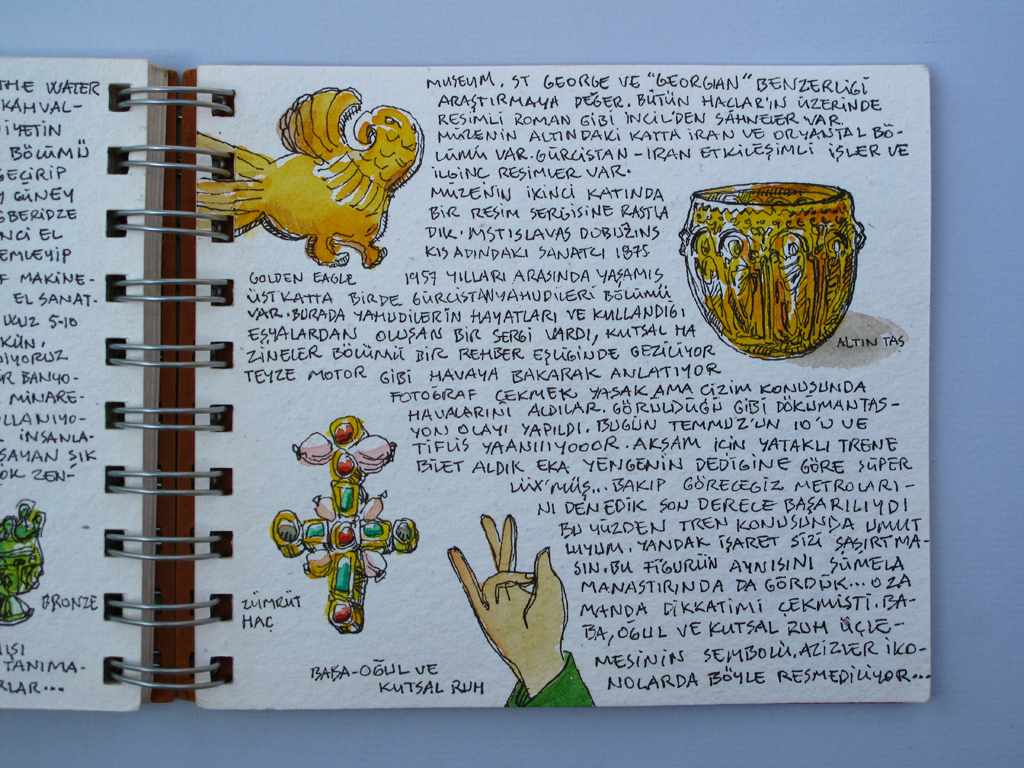 THE WATER
KAHVAL-
İYETİN
BÖLÜMÜ
GEÇİRİP
GÜNEY
GBERIDZE
NCİ EL
EMLEYİP
F MAKİNE-
EL SANAT-
UCUZ 5-10
KÜN,
DIYORUZ
BANYO-
MINARE-
LLANIYO-
INSANLA-
SAYAN SIK
ÖK ZEN-
BRONZE
TANIMA-
RLAR...
MUSEUM. ST GEORGE VE "GEORGIAN" BENZERLİĞİ
ARAŞTIRMAYA DEĞER. BÜTÜN HAÇLAR'IN ÜZERİNDE
RESİMLİ ROMAN GİBİ İNCİL'DEN SAHNELER VAR.
MÜZENİN ALTINDAKİ KATTA İRAN VE ORYANTAL BÖ-
LÜMÜ VAR. GÜRCİSTAN-İRAN ETKİLEŞİMLİ İŞLER VE
İLGİNÇ RESİMLER VAR.
MÜZENİN İKİNCİ KATINDA
BİR RESİM SERGİSİNE RASTLA
DIK. MSTISLAVAS DOBUŽINS
KIS ADINDAKİ SANATÇI 1875
GOLDEN EAGLE
1957 YILLARI ARASINDA YAŞAMIŞ
ÜST KATTA BİRDE GÜRCİSTAN YAHUDİLERİ BÖLÜMÜ
VAR. BURADA YAHUDİLERİN HAYATLARI VE KULLANDIĞI
EŞYALARDAN OLUŞAN BİR SERGİ VARDI, KUTSAL HA
ZİNELER BÖLÜMÜ BİR REHBER EŞLİĞİNDE GEZİLİYOR
TEYZE MOTOR GİBİ HAVAYA BAKARAK ANLATIYOR
ALTIN TAS
FOTOĞRAF ÇEKMEK YASAK AMA ÇİZİM KONUSUNDA
HAVALARINI ALDILAR. GÖRÜLDÜĞÜ GİBİ DÖKÜMANTAS-
YON OLAYI YAPILDI. BUGÜN TEMMUZ'UN 10'U VE
TİFLİS YAANIIYOOOR. AKŞAM İÇİN YATAKLI TRENE
BİLET ALDIK EKA YENGENİN DEDİĞİNE GÖRE SÜPER
LÜX'MÜŞ... BAKIP GÖRECEĞİZ METROLARI-
NI DENEDİK SON DERECE BAŞARILIYDI
BU YÜZDEN TREN KONUSUNDA UMUT
LUYUM. YANDAK İŞARET SİZİ ŞAŞIRTMA-
SIN. BU FİGÜRÜN AYNISINI SÜMELA
MANASTIRINDA DA GÖRDÜK... O ZA
MANDA DİKKATİMİ ÇEKMİŞTİ. BA-
BA, OĞUL VE KUTSAL RUH ÜÇLE-
MESİNİN SEMBOLÜ. AZİZLER İKO-
NOLARDA BÖYLE RESMEDİLİYOR...
ZÜMRÜT
HAÇ
BABA-OĞUL VE
KUTSAL RUH